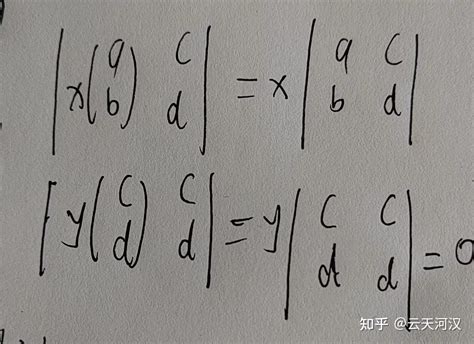 |x(a b) c d| = x|a c b d|
|y(c d) c d| = y|c c d d| = 0
知乎 @云天河汉